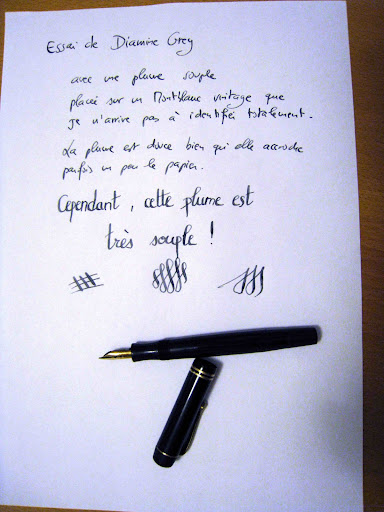 Essai de Diamine Grey
avec une plume souple
placée sur un Montblanc vintage que
je n'arrive pas à identifier totalement.
La plume est douce bien qu'elle accroche
parfois un peu le papier.
Cependant, cette plume est
très souple !